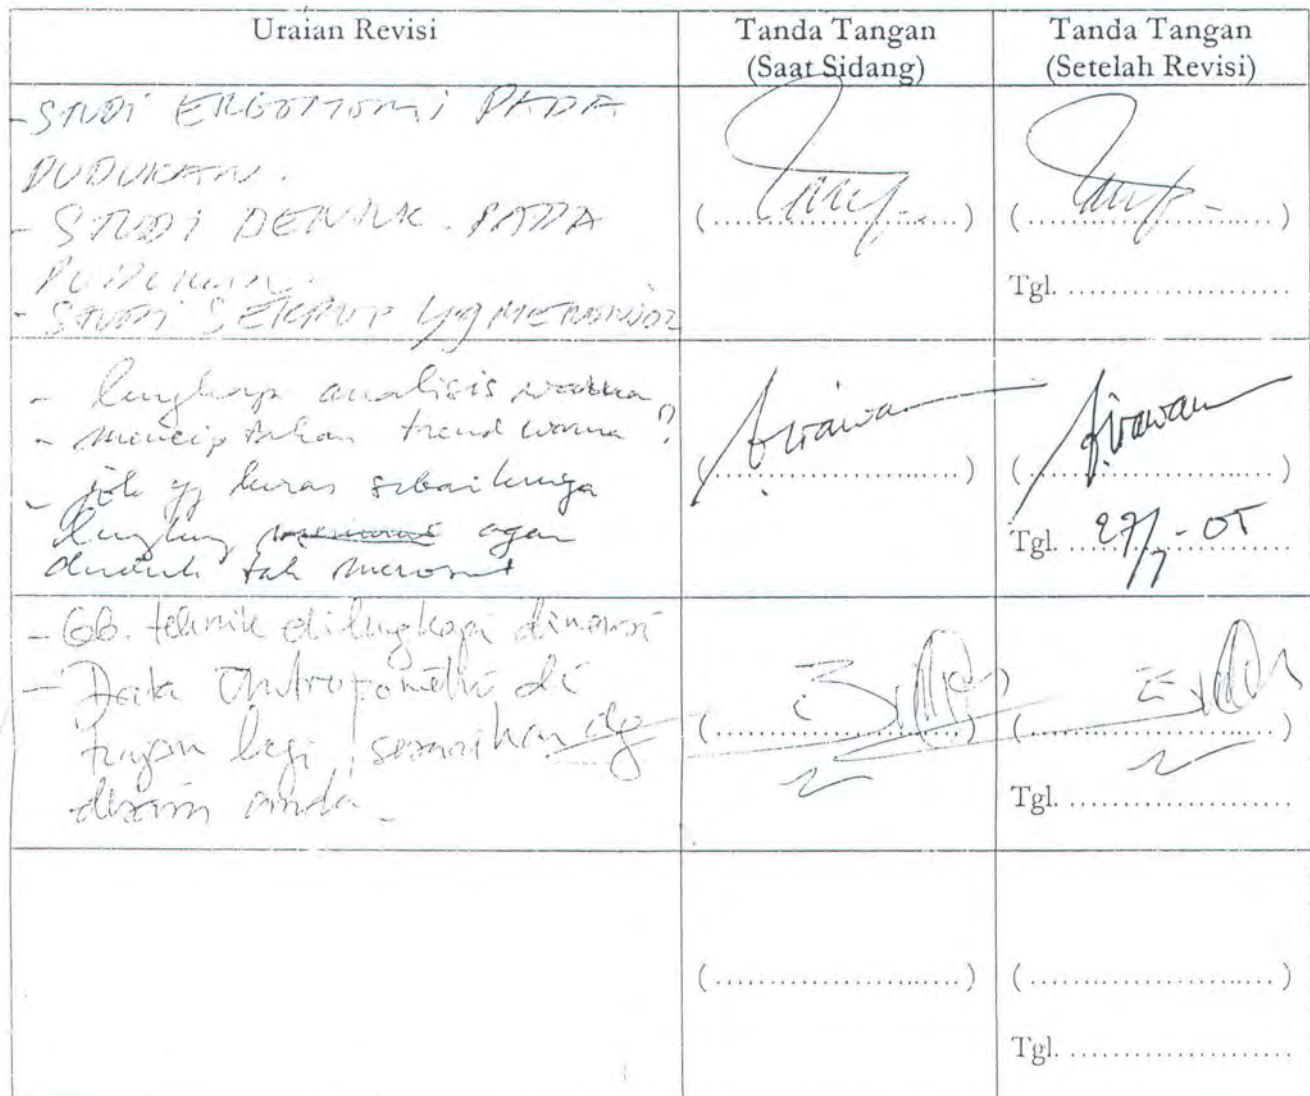 Uraian Revisi
Tanda Tangan
(Saat Sidang)
Tanda Tangan
(Setelah Revisi)
- STUDI ERGONOMI PADA
DUDUKAN.
- STUDI PADA
DUDUKAN.
- STUDI SEKRUP yg
(......................)
(......................)
Tgl. ......................
- lengkapi analisis warna
- menciptakan trend warna?
- jok yg keras sebaiknya
lengkung agar
duduk tak merosot
(......................)
Irawan
(......................)
Tgl. 27/7-05
- Gb. teknik dilengkapi dimensi
- Data Anthropometri di
tinjau lagi, sesuaikan dg
desain anda.
(......................)
(......................)
Tgl. ......................
(......................)
(......................)
Tgl. ......................